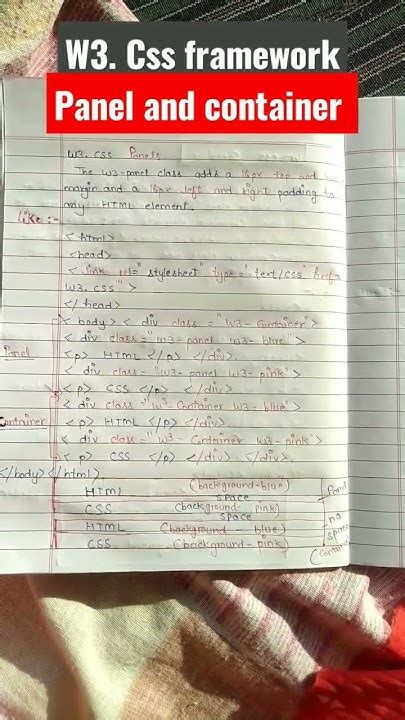 W3. Css framework
Panel and container
W3. CSS Panels
The W3-panel class adds a 16px top and
margin and a 16px left and right padding to
any HTML element.
Like :-
< html>
<head>
< link rel= "stylesheet" type = "text/css" href=
W3. CSS" >
</ head>
< body> < div class = "W3- Container">
< div class = "W3- panel W3- blue">
<p> HTML </p> </div>
< div class = "W3- panel W3- pink">
<p> CSS </p> </div>
Panel
< div class = "W3- Container W3- blue">
Container
<p> HTML </p> </div>
< div class = "W3- Container W3- pink">
<p> CSS </p> </div> </div>
</body></html>
HTML (background-blue)
space
CSS (background- pink)
space
Panel
HTML (background - blue)
CSS (background- pink)
no
space
(Container